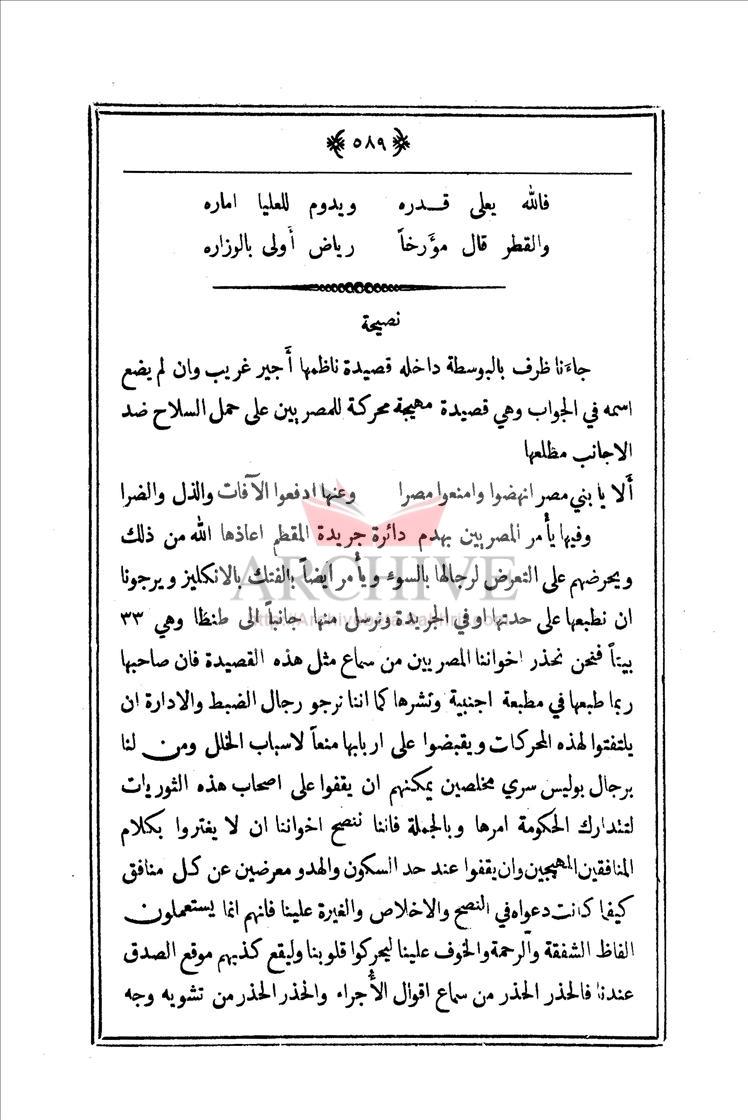 ٥٨٩
فالله يعلى قـدره ويدوم للعليا اماره
والقطر قال مؤرخاً رياض أولى بالوزاره
نصيحة
جاءنا ظرف بالبوسطة داخله قصيدة ناظمها أجير غريب وان لم يضع
اسمه في الجواب وهي قصيدة مهيجة محركة للمصريين على حمل السلاح ضد
الاجانب مطلعها
ألا يا بني مصر انهضوا وامنعوا مصرا وعنها ادفعوا الآفات والذل والضرا
وفيها يأمر المصريين بهدم دائرة جريدة المقطم اعاذها الله من ذلك
ويحرضهم على التعرض لرجالها بالسوء ويأمر ايضاً بالفتك بالانكليز ويرجونا
ان نطبعها على حدتها او في الجريدة ونرسل منها جانباً الى طنطا وهي ٣٣
بيتاً فنحن نحذر اخواننا المصريين من سماع مثل هذه القصيدة فان صاحبها
ربما طبعها في مطبعة اجنبية ونشرها كما اننا نرجو رجال الضبط والادارة ان
يلتفتوا لهذه المحركات ويقبضوا على اربابها منعاً لاسباب الخلل ومن لنا
برجال بوليس سري مخلصين يمكنهم ان يقفوا على اصحاب هذه الثوريات
لتتدارك الحكومة امرها وبالجملة فاننا ننصح اخواننا ان لا يغتروا بكلام
المنافقين المهيجين وان يقفوا عند حد السكون والهدو معرضين عن كل منافق
كيفما كانت دعواه في النصح والاخلاص والغيرة علينا فانهم انما يستعملون
الفاظ الشفقة والرحمة والخوف علينا ليحركوا قلوبنا وليقع كذبهم موقع الصدق
عندنا فالحذر الحذر من سماع اقوال الأجراء والحذر الحذر من تشويه وجه
ARCHIVE